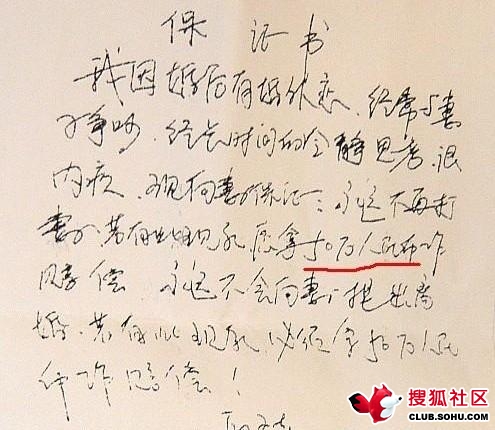 保证书
我因婚后有婚外恋、经常与妻
子争吵、经长时间的冷静思考、很
内疚、现向妻子保证:永远不再打
妻子若有此现象愿拿50万人民币作
赔偿 永远不会向妻子提出离
婚、若有此现象必须拿50万人民
币作赔偿!
搜狐社区
CLUB.SOHU.COM